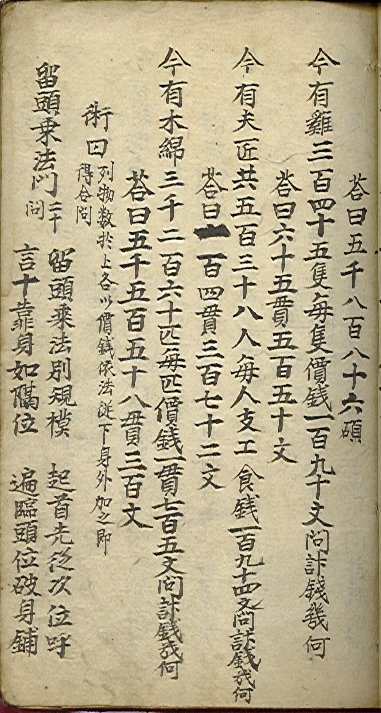 荅曰五千八百八十六碩
今有雞三百四十五隻每隻價錢一百九十文問計錢幾何
荅曰六十五貫五百五十文
今有夫匠共五百三十八人每人支工食錢一百九十四文問計錢幾何
荅曰一百四貫三百七十二文
今有木綿三千二百六十匹每匹價錢一貫七百五文問計錢幾何
荅曰五千五百五十八貫三百文
術曰
列物數於上各以價錢依法從下身外加之即
得合問
留頭乘法門二十問
留頭乘法別規模 起首先從次位呼
言十靠身如隔位 遍臨頭位破身鋪